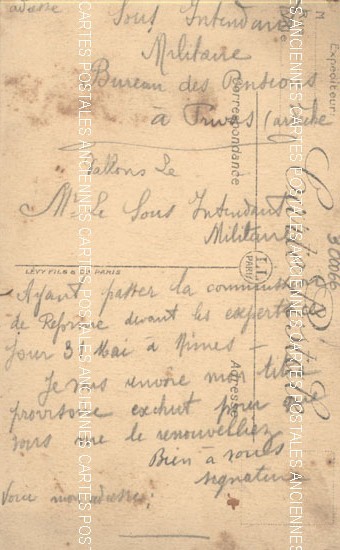 adresse
Sous Intendant
Militaire
Bureau des Pensions
à Privas (Ardèche
Vallons Le
Mr Le Sous Intendant
Militaire
LÉVY FILS & Cie PARIS
L.L.
PARIS
Ayant passer la commission
de Reforme devant les experts
Jour 3 Mai à Nimes —
Je vous envoie mon titre
provisoire pour
vous me le renouvelliez
Bien à vous
signature
Voici mon adresse
Correspondance
Adresse
Carte Postale
Expéditeur
M
30066
CARTES POSTALES ANCIENNES CARTES POSTALES ANCIENNES CARTES POST
CARTES POSTALES ANCIENNES CARTES POSTALES ANCIENNES